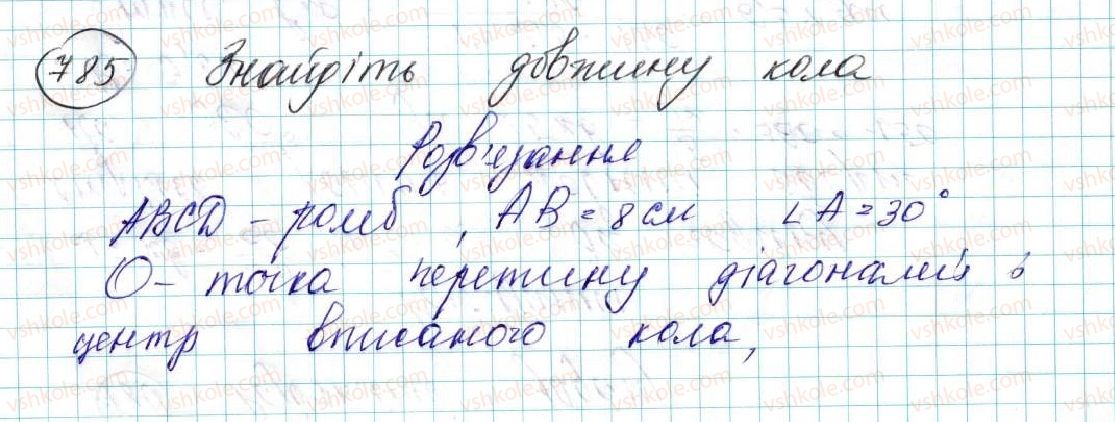 785 Знайдіть довжину кола
Розв'язання
ABCD - ромб, AB = 8 см ∠A = 30°
O - точка перетину діагоналей і
центр вписаного кола,